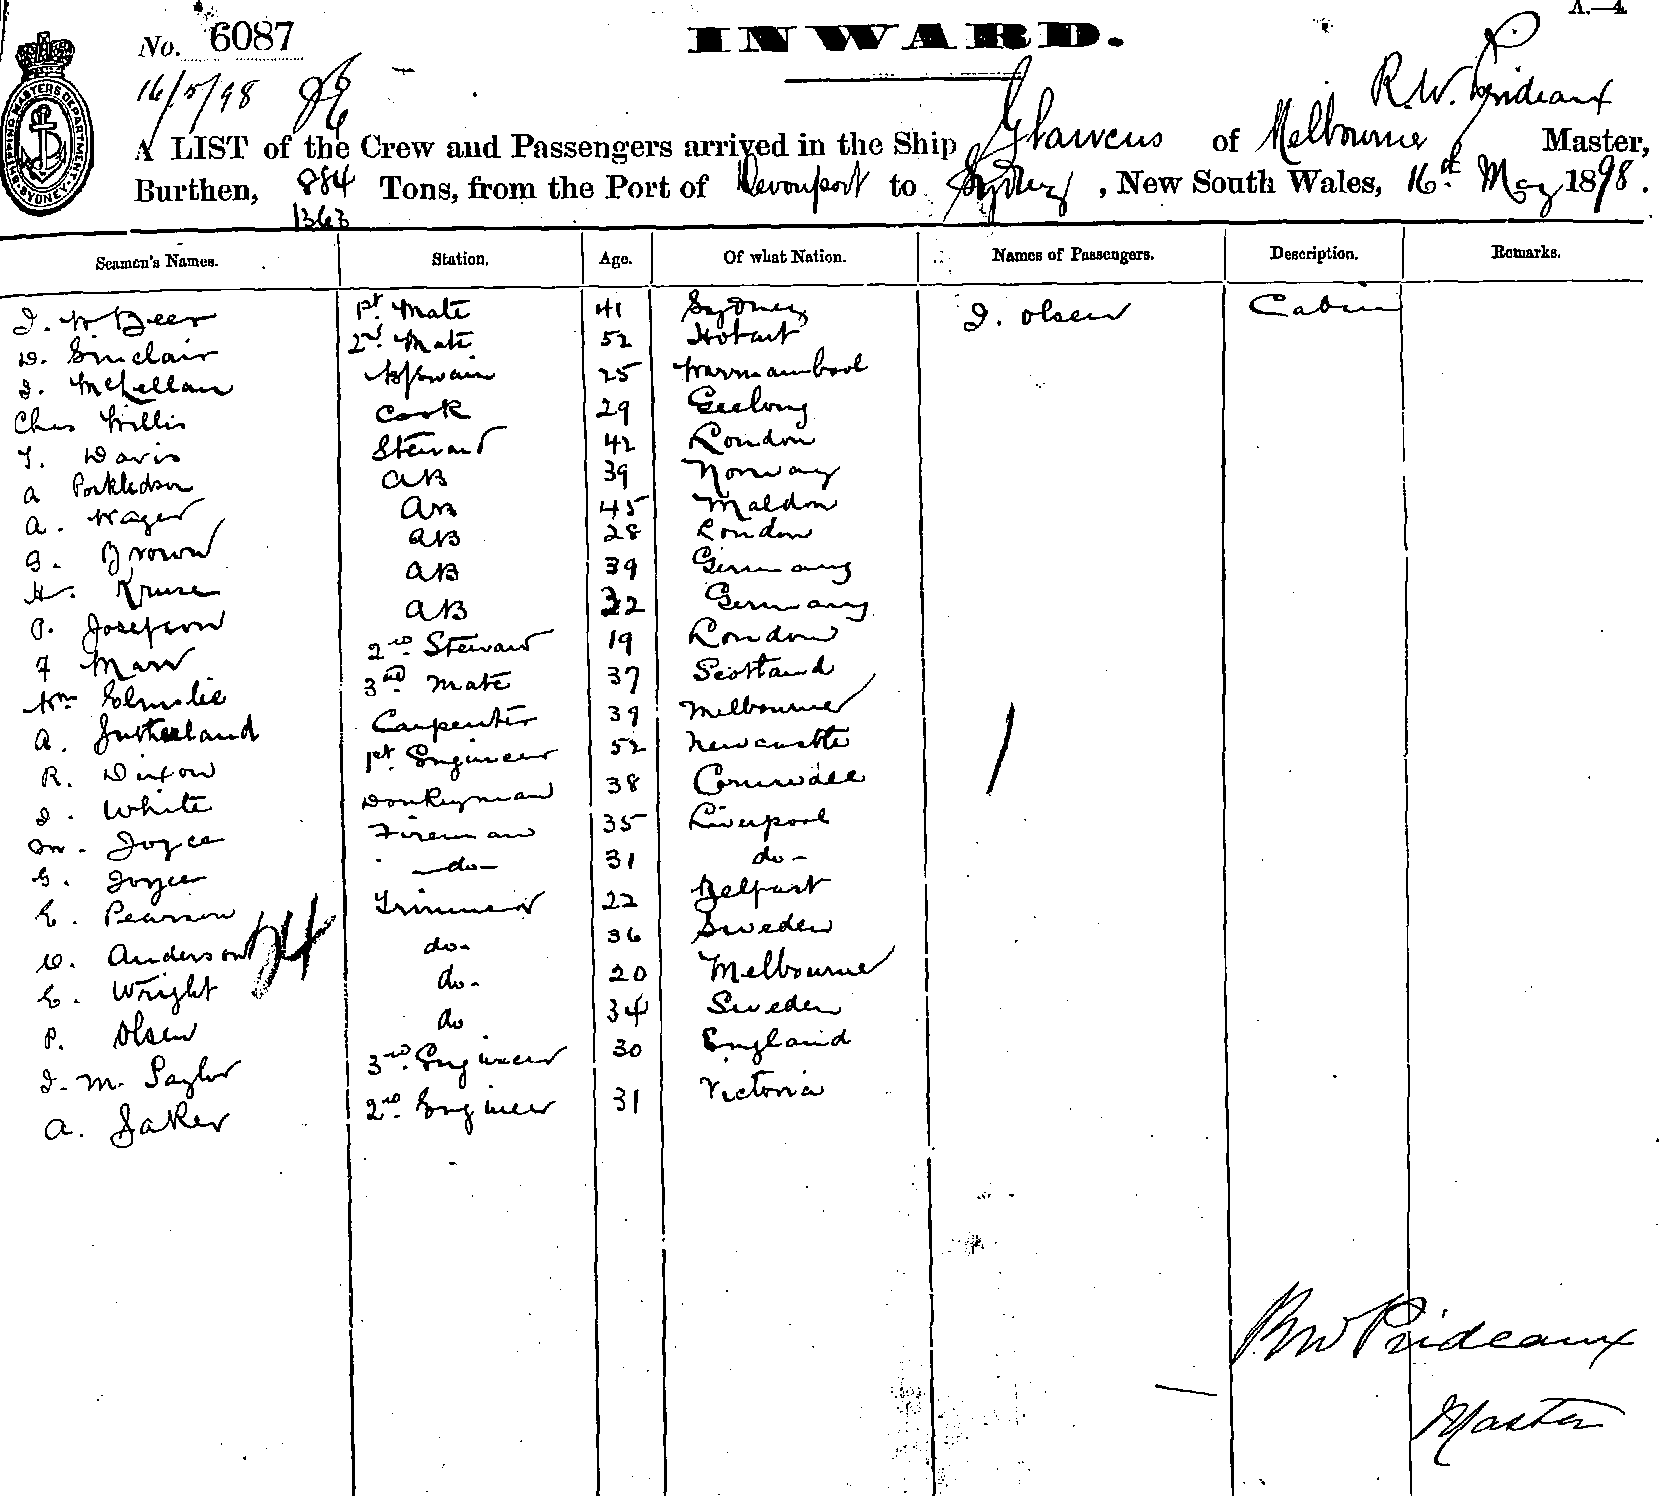 A.—4
No. 6087
INWARD.
16/5/98
R. W. Prideaux
A LIST of the Crew and Passengers arrived in the Ship Glaucus of Melbourne Master,
Burthen, 884 Tons, from the Port of Devonport to Sydney, New South Wales, 16th May 1898.
1363
SHIPPING MASTERS DEPARTMENT SYDNEY
Seamen's Names. Station. Age. Of what Nation. Names of Passengers. Description. Remarks.
1st Mate 41 Sydney J. Olsen Cabin
D. Sinclair 2nd Mate 52 Hobart
J. McLellan B/swain 25 Warrnambool
Chas Willis Cook 29 Geelong
T. Davis Steward 42 London
A AB 39 Norway
A. Wager AB 45 Maldon
G. Brown AB 28 London
H. Kruse AB 39 Germany
P. Josefson AB 32 Germany
F Marr 2nd Steward 19 London
Wm Elmslie 3rd Mate 37 Scotland
A. Sutherland Carpenter 39 Melbourne
R. Dixon 1st Engineer 52 Newcastle
J. White Donkeyman 38 Cornwall
M. Joyce Fireman 35 Liverpool
G. Joyce —do— 31 do-
E. Pearson Trimmer 22 Belfast
O. Anderson do- 36 Sweden
24
E. Wright do- 20 Melbourne
P. Olsen do 34 Sweden
J. M. Saylor 3rd Engineer 30 England
A. Saker 2nd Engineer 31 Victoria
1
RW Prideaux
Master